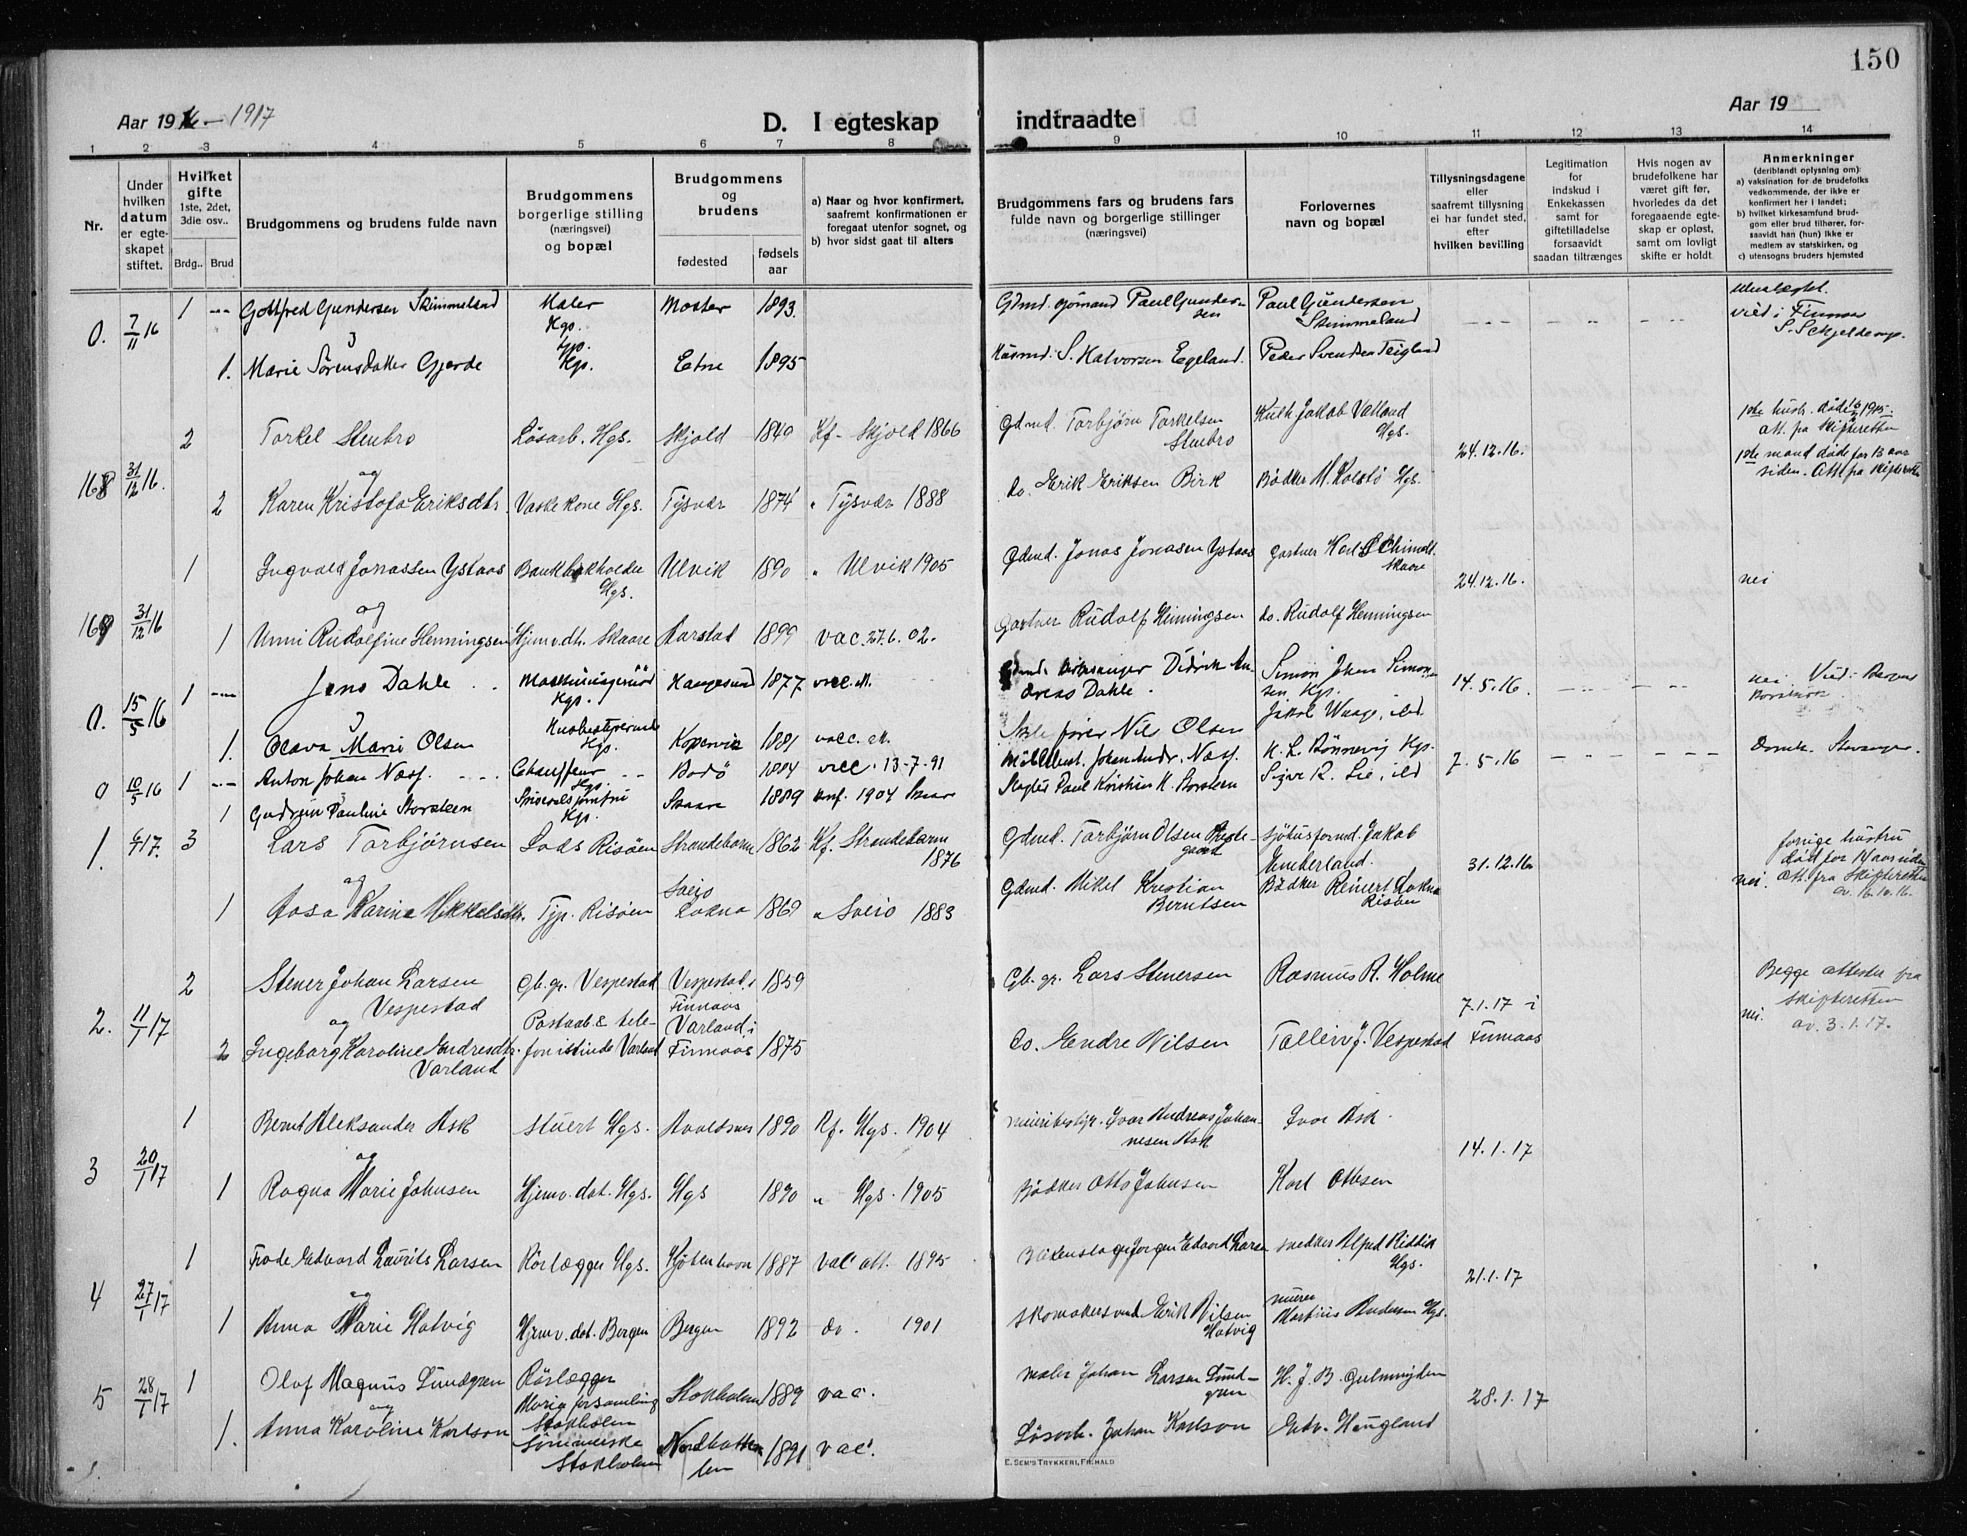 150
Aar 1916 - 1917
D. I egteskap indtraadte
Aar 19
1 2 3 4 5 6 7 8 9 10 11 12 13 14
Nr.
Under hvilken datum er egteskapet stiftet.
Hvilket gifte
1ste, 2det, 3die osv..
Brdg.. Brud
Brudgommens og brudens fulde navn
Brudgommens borgerlige stilling (næringsvei) og bopæl
Brudgommens og brudens
fødested
fødselsaar
a) Naar og hvor konfirmert, saafremt konfirmationen er foregaat utenfor sognet, og
b) hvor sidst gaat til alters
Brudgommens fars og brudens fars fulde navn og borgerlige stillinger (næringsvei)
Forlovernes navn og bopæl
Tillysningsdagene eller saafremt tillysning ei har fundet sted, efter hvilken bevilling
Legitimation for indskud i Enkekassen samt for giftetilladelse forsaavidt saadan tiltrænges
Hvis nogen av brudefolkene har været gift før, hvorledes da det foregaaende egteskap er opløst, samt om lovligt skifte er holdt
Anmerkninger
(deriblandt oplysning om):
a) vaksination for de brudefolks vedkommende, der ikke er konfirmert her i landet;
b) hvilket kirkesamfund brudgom eller brud tilhører, forsaavidt han (hun) ikke er medlem av statskirken, og
c) utensogns bruders hjemsted
0. 7/11 16 1 Gottfred Gundersen Skimmeland Maler Hgs. Moster 1893 Gdmd. Paul Gundersen Paul Gundersen Skimmeland
1. Marie Sørensdatter Gjerde Hgs. Etne 1895 Husmd. S. Halvorsen Egeland. Peder Svendsen Teigland
2 Torkel Stenbro Løsarb. Hgs. Skjold 1849 Kf. Skjold 1866 Gdmd. Torbjørn Torkelsen Stenbro Jakob Valland Hgs. 1ste hustr. døde 1905. att. fra skifteretten
168 31/12 16. og 24.12.16.
2 Karen Kristofa Eriksdtr. Vaskekone Hgs. Tysvær 1874 " Tysvær 1888 do. Erik Eriksen Birk Bødker M. Kolstø Hgs. 1ste mand døde for 13 aar siden. Att fra skifteretten
1 Ingvald Jonassen Ystaas Bankbokholder Hgs. Ulvik 1890 " Ulvik 1905 Gdmd. Jonas Jonasen Ystaas Gartner Karl Schimdt Skaare
169 31/12 16 og 24.12.16. nei
1 Unni Rudolfine Henningsen Hjemv.dtr. Skaare Aarstad 1899 vac. 27.6.02. Gartner Rudolf Henningsen do. Rudolf Henningsen
0. 15/5 16 1 Jens Dahle Hgs. Haugesund 1877 vacc. Didrik Andreas Dahle. Simon Johan Simonsen Hgs. 14.5.16. nei. Viet i Bergen
1. Olava Marie Olsen Hgs. Kopervik 1881 vacc. Nils Olsen Jakob Waage, ibd.
0 10/5 16 1 Anton Johan Næss. Chauffeur Hgs. Bodø 1884 vacc. 13-7-91 Johan Andr. Næss. H. L. Bønnevig Hgs. 7.5.16 Domk. Stavanger.
1 Gudrun Pauline Storsteen Hgs. Skaare 1889 konf. 1904 Skaare Paul Kristian K. Storsteen Sigv. R. Lie, ibd
1. 6/1 17. 3 Lars Torbjørnsen Lods Risøen Strandebarm 1862 Kf. Strandebarm 1876 Gdmd. Torbjørn Olsen Jakob forrige hustru død for 14 aar siden att. fra Skifteretten av 16.10.16.
og 31.12.16 nei.
1 Aasa Karine Mikkelsdtr. Tjp. Risøen Sveio Lokna 1869 " Sveio 1883 Gdmd. Mikel Kristian Berntsen Bødker Reinert Lokna Risøen
2 Stener Johan Larsen Vespestad Gb.gr. Vespestad Vespestad i Finnaas 1859 Gb. gr. Lars Stenersen Rasmus R. Holme Begge attester fra skifteretten av. 3.1.17.
2. 11/1 17 og 7.1.17 i Finnaas nei.
2 Ingeborg Karoline Endresdtr. Varland Varland i Finnaas 1875 do. Endre Nilsen Tolleiv J. Vespestad
1 Bernt Aleksander Ask Stuert Hgs. Avaldsnes 1890 Kf. Hgs. 1904 Ivar Andreas Johannesen Ask Ivar Ask
3 20/1 17 og 14.1.17
1 Ragna Marie Johnsen Hjemv. dat. Hgs. Hgs 1890 " Hgs. 1905 Bødker Otto Johnsen Karl Ottesen
1 Frode Edvard Laurits Larsen Rørlægger Hgs. Kjøbenhavn 1887 vac att. 1895 Jørgen Edvard Larsen Snedker Alfred Hgs.
4 27/1 17 og 21.1.17
1 Anna Marie Hatvig Hjemv. dat. Bergen Bergen 1892 do. 1901 Skomakersvend Erik Nilsen Hatvig murer Martius Andersen Hgs.
5 28/1 17 1 Olof Magnus Lundgren Rørlægger Maria forsamling Stokholm Stokholm 1889 vac. Maler Johan Larson Lundgren H. J. B.
og 28.1.17
1. Anna Karolina Karlson Stokholm Nordbotten len 1891 vac. Løsarb. Johan Karlson Edv. Haugland
E. SEM'S TRYKKERI, FR.HALD